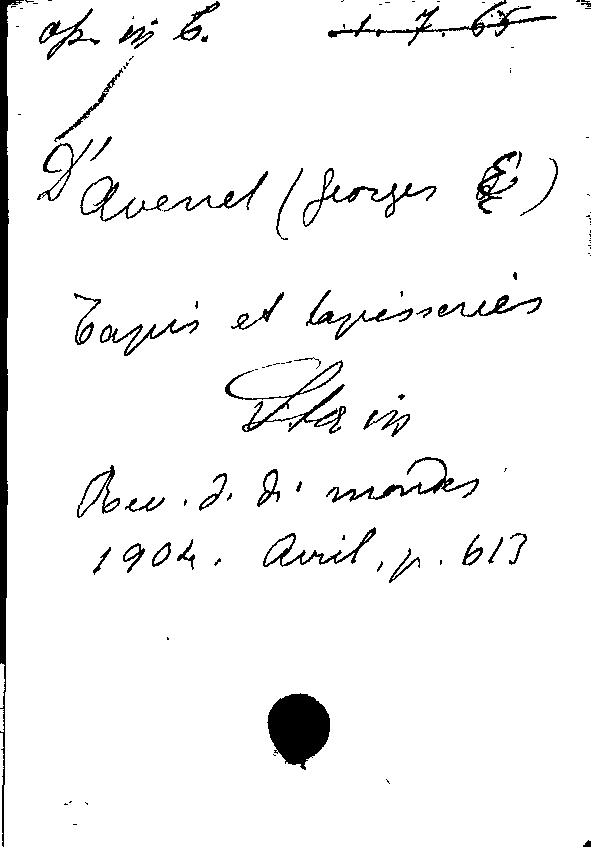 op. in C. 1. 7. 65
D'Avenel (Georges E)
Tapis et tapisseries
Rev. d. d. mondes
1904. Avril, p. 613